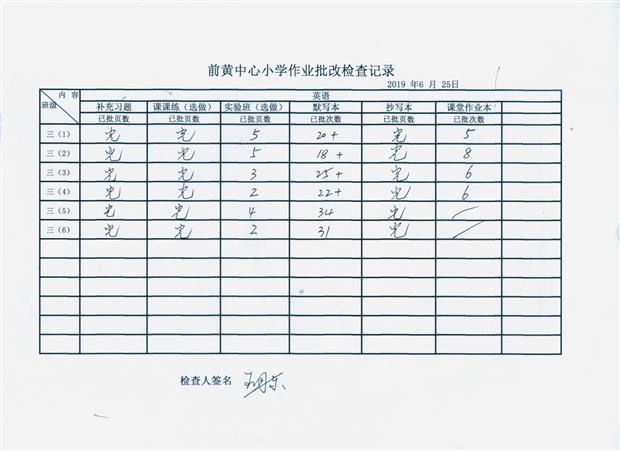 前黄中心小学作业批改检查记录
2019 年6 月 25日
内 容
班级
英语
补充习题 课课练（选做） 实验班（选做） 默写本 抄写本 课堂作业本
已批页数 已批页数 已批页数 已批次数 已批页数 已批次数
三（1） 完 完 5 20+ 完 5
三（2） 完 完 5 18+ 完 8
三（3） 完 完 3 25+ 完 6
三（4） 完 完 2 22+ 完 6
三（5） 完 完 4 34 完 /
三（6） 完 完 2 31 完 /
检查人签名